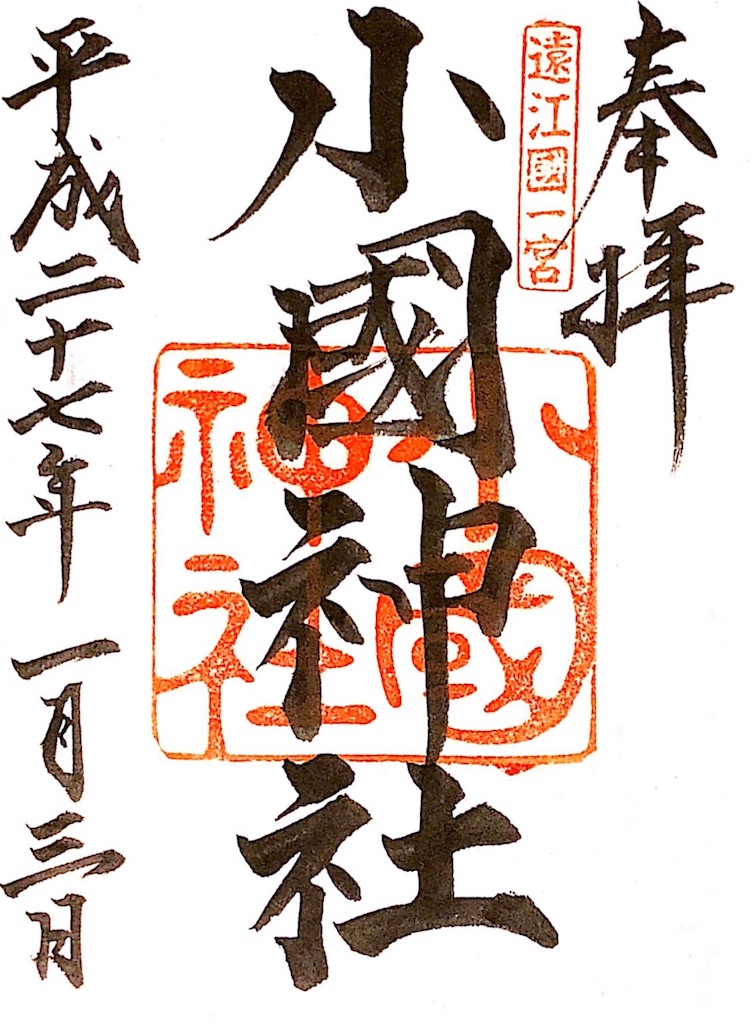 奉拝
遠江國一宮
小國神社
小國
神社
平成二十七年一月三日